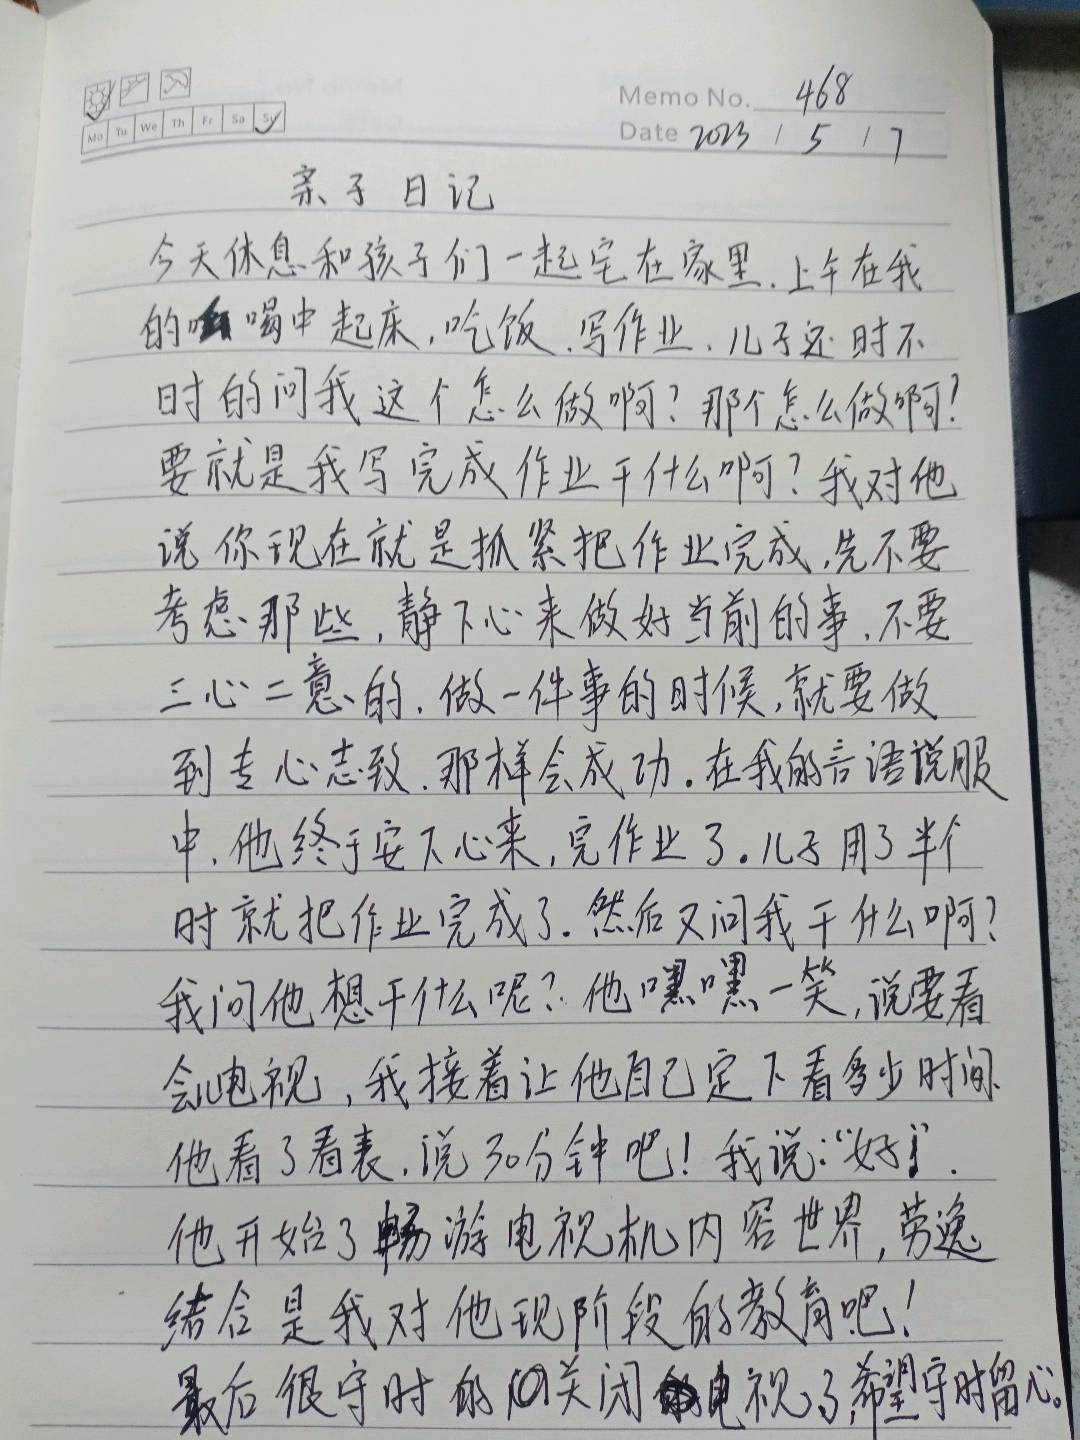 Memo No. 468
Mo Tu We Th Fr Sa Su
Date 2023 / 5 / 7
亲子日记
今天休息和孩子们一起宅在家里.上午在我
的喝中起床,吃饭.写作业.儿子还时不
时的问我这个怎么做啊?那个怎么做啊?
要就是我写完成作业干什么啊?我对他
说你现在就是抓紧把作业完成,先不要
考虑那些,静下心来做好当前的事.不要
三心二意的.做一件事的时候,就要做
到专心志致.那样会成功.在我的言语说服
中.他终于安下心来,完作业了.儿子用了半个
时就把作业完成了.然后又问我干什么啊?
我问他想干什么呢?他嘿嘿一笑,说要看
会儿电视,我接着让他自己定下看多少时间.
他看了看表.说30分钟吧!我说:“好!”.
他开始了畅游电视机内容世界,劳逸
结合是我对他现阶段的教育吧!
最后很守时的关闭电视了,希望守时留心。